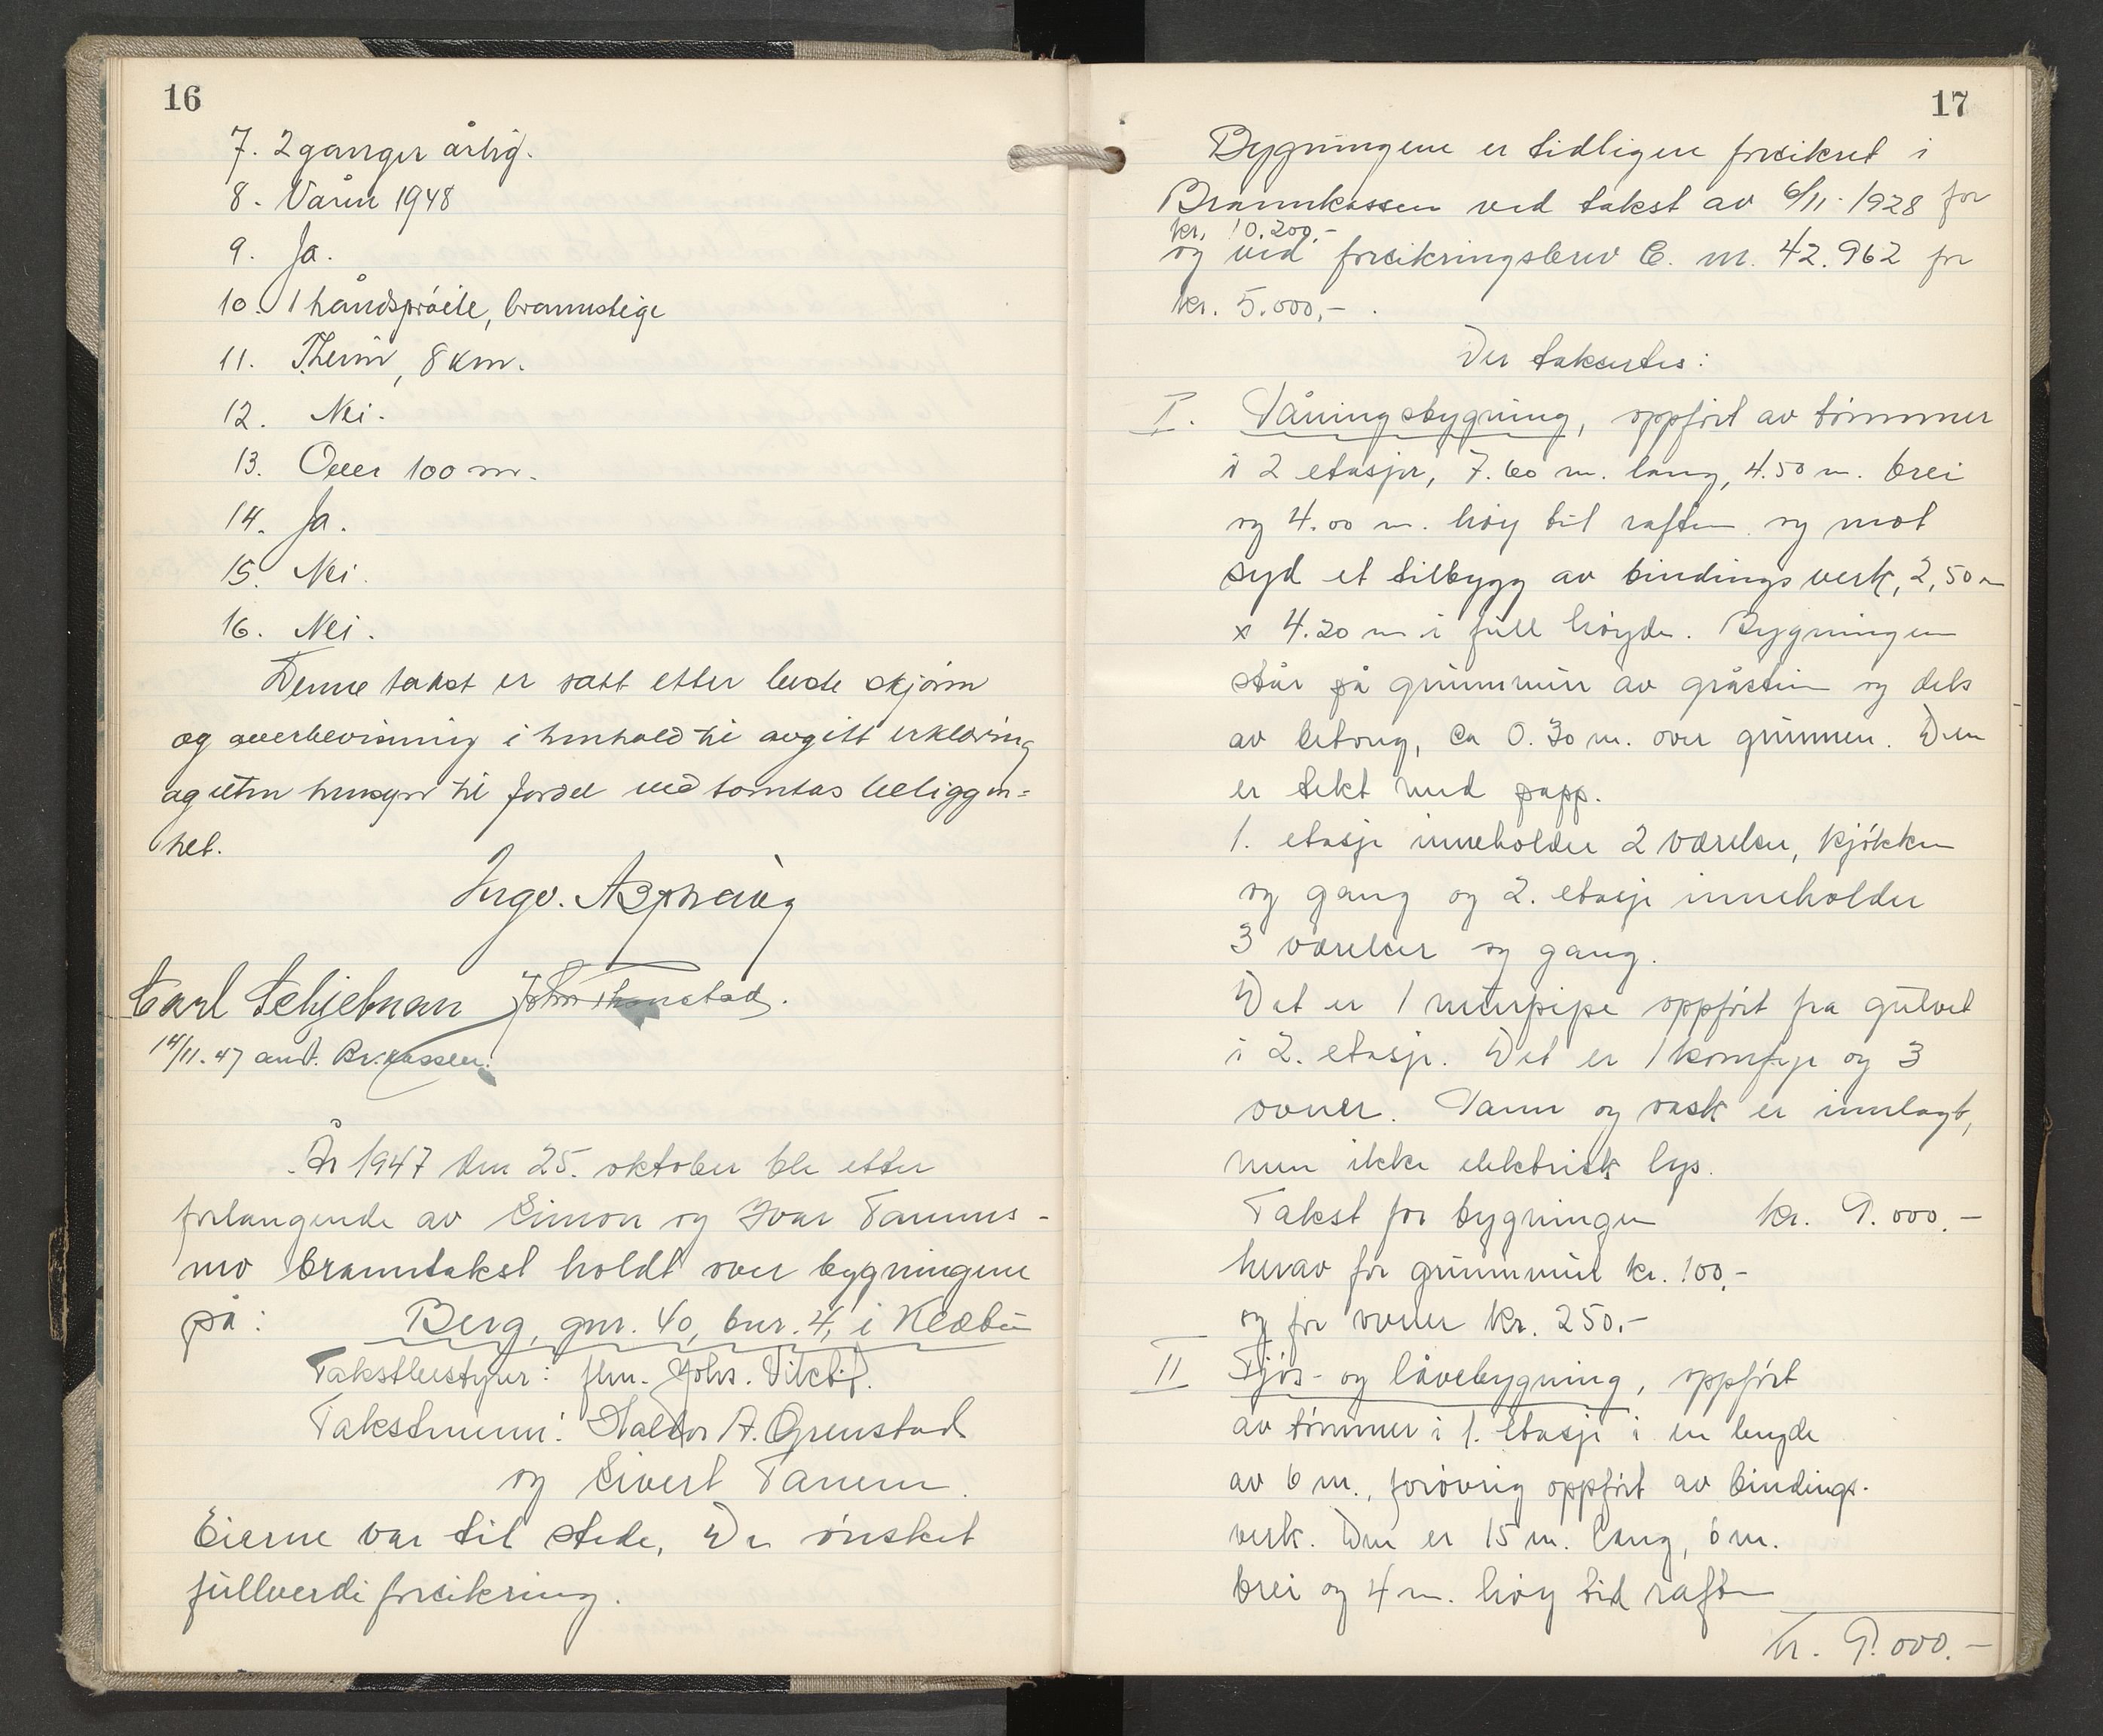 16
7. 2 ganger årlig.
8. Våren 1948
9. Ja.
10. 1 håndsprøite, brannstige
11. 8 km.
12. Nei.
13. Over 100 m.
14. Ja.
15. Nei.
16. Nei.
Denne takst er satt etter beste skjønn
og overbevisning i henhold til avgitt erklæring
og uten hensyn til fordel ved tomtas beliggen=
het.
Ingv.
Carl Schjetnan John
14/11.47 ant. Br.kassen.
År 1947 den 25. oktober ble etter
forlangende av Simon og Ivar Tanems-
mo branntakst holdt over bygningene
på: Berg, gnr. 40, bnr. 4, i Klæbu
Takstbestyrer: flm. Johs.
Takstmenn: Haldor A. Grenstad
og Sivert Tanem.
Eierne var til stede. De ønsket
fullverdiforsikring.
17
Bygningene er tidligere forsikret i
Brannkassen ved takst av 6/11. 1928 for
kr. 10.200.-
og ved forsikringsbrev C. nr. 42.962 for
kr. 5.000,- .
Der takseertes:
I. Våningsbygning, oppført av tømmer
i 2 etasjer, 7.60 m. lang, 4.50 m. brei
og 4.00 m. høy til raften og mot
syd et tilbygg av bindingsverk, 2,50 m
x 4.20 m i full høyde. Bygningen
står på grunnmur av gråstein og dels
av betong, ca 0.30 m. over grunnen. Den
er tekt med papp.
1. etasje inneholder 2 værelser, kjøkken
og gang og 2. etasje inneholder
3 værelser og gang.
Det er 1 murpipe oppført fra gulvet
i 2. etasje. Det er 1 komfyr og 3
ovner. Vann og vask er innlagt,
men ikke elektrisk lys.
Takst for bygningen kr. 9.000.-
herav for grunnmur kr. 100,-
og for ovner kr. 250.-
II Fjøs- og låvebygning, oppført
av tømmer i 1. etasje i en lengde
av 6 m., forøvrig oppført av bindings-
verk. Den er 15 m. lang, 6 m.
brei og 4 m. høy til raften
kr. 9.000.-